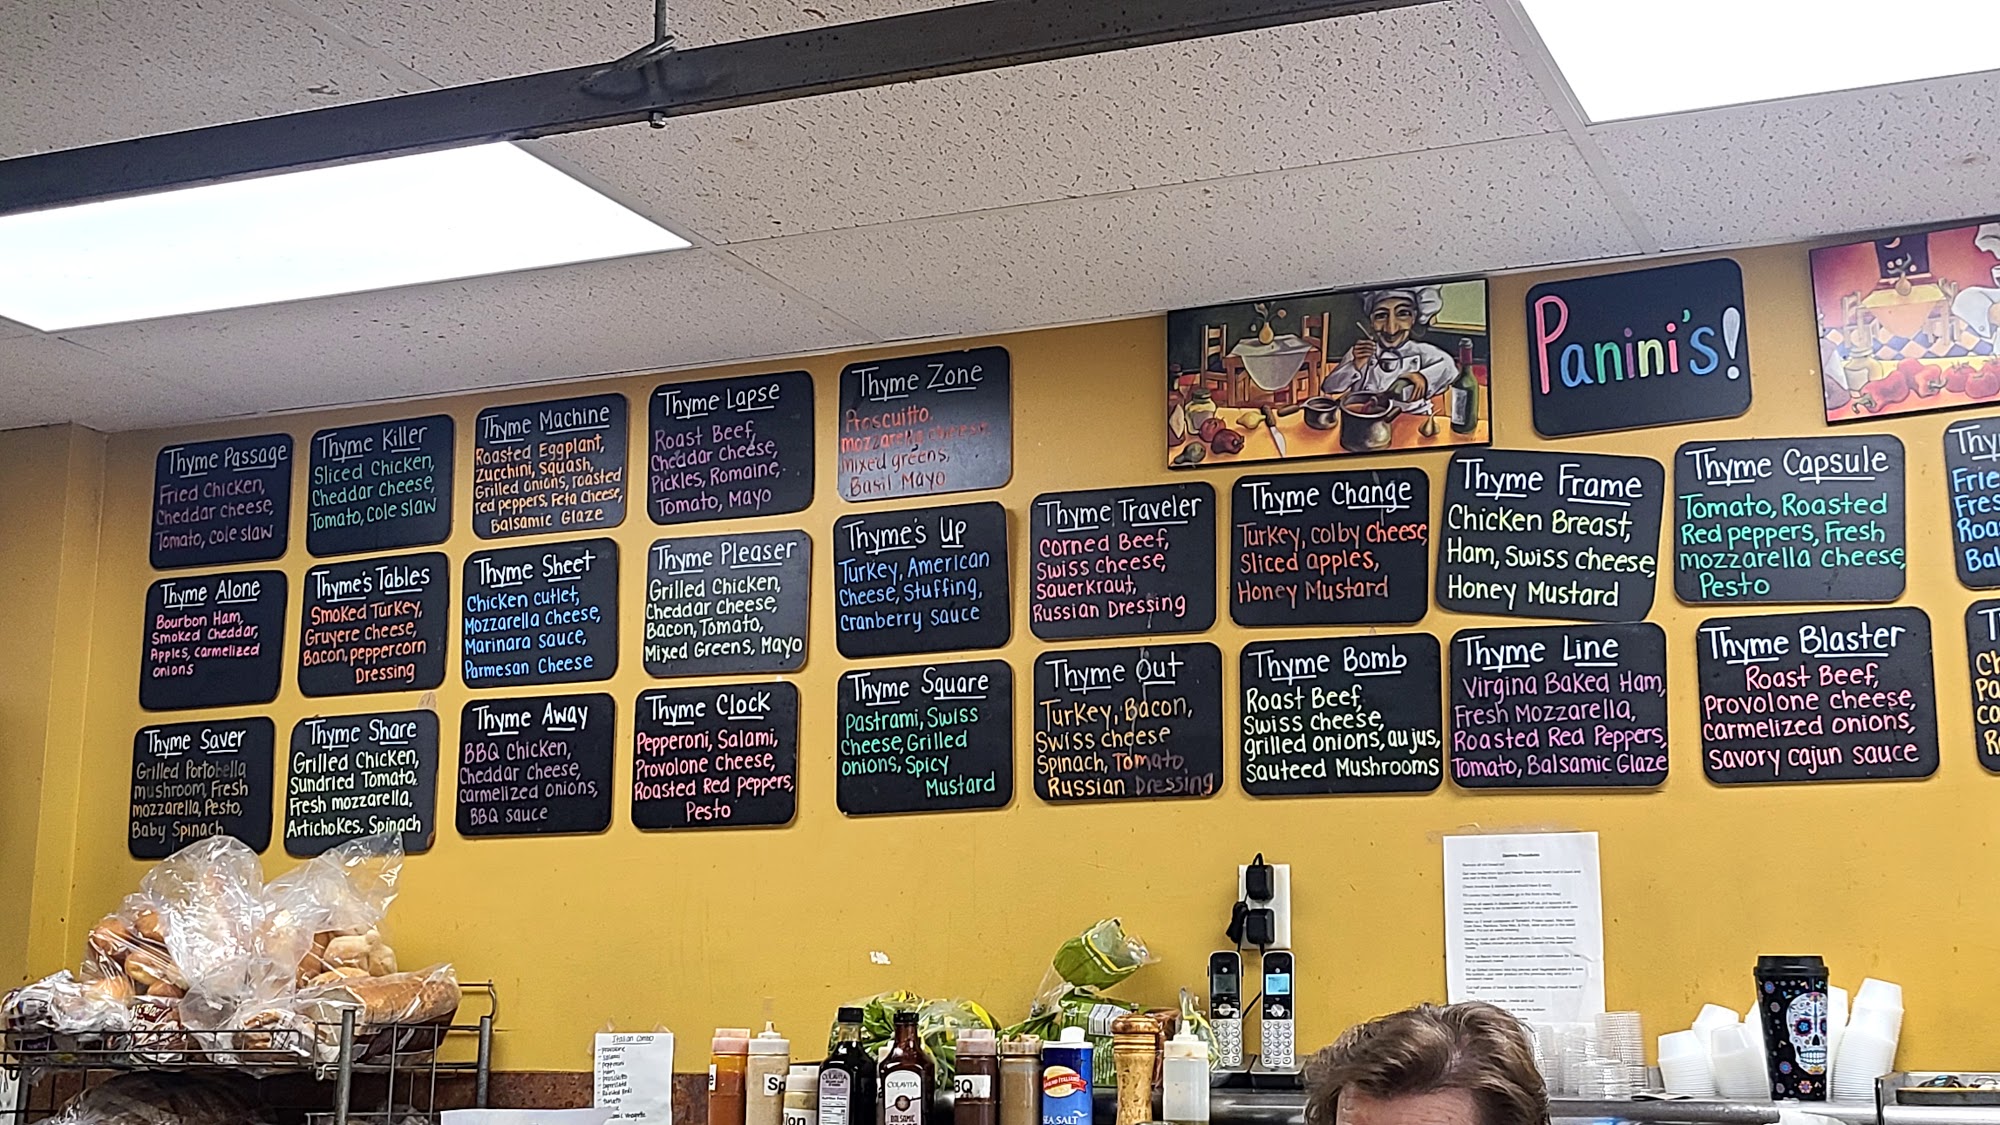 Thyme Passage
Fried Chicken,
Cheddar cheese,
Tomato, cole slaw
Thyme Killer
Sliced Chicken,
Cheddar Cheese,
Tomato, cole slaw
Thyme Machine
Roasted Eggplant,
Zucchini, squash,
Grilled onions, roasted
red peppers, Feta cheese,
Balsamic Glaze
Thyme Lapse
Roast Beef,
Cheddar cheese,
Pickles, Romaine,
Tomato, Mayo
Thyme Zone
Proscuitto,
mozzarella cheese,
mixed greens,
Basil Mayo
Panini's!
Thyme Alone
Bourbon Ham,
Smoked Cheddar,
Apples, carmelized
onions
Thyme's Tables
Smoked Turkey,
Gruyere cheese,
Bacon, peppercorn
Dressing
Thyme Sheet
Chicken cutlet,
Mozzarella Cheese,
Marinara sauce,
Parmesan Cheese
Thyme Pleaser
Grilled Chicken,
Cheddar cheese,
Bacon, Tomato,
Mixed Greens, Mayo
Thyme's Up
Turkey, American
Cheese, Stuffing,
Cranberry sauce
Thyme Traveler
Corned Beef,
Swiss cheese,
Sauerkraut,
Russian Dressing
Thyme Change
Turkey, colby cheese,
Sliced apples,
Honey Mustard
Thyme Frame
Chicken Breast,
Ham, Swiss cheese,
Honey Mustard
Thyme Capsule
Tomato, Roasted
Red peppers, Fresh
mozzarella Cheese,
Pesto
Thyme Saver
Grilled Portobella
mushroom, Fresh
mozzarella, Pesto,
Baby Spinach
Thyme Share
Grilled Chicken,
Sundried Tomato,
Fresh mozzarella,
Artichokes, Spinach
Thyme Away
BBQ Chicken,
Cheddar cheese,
Carmelized onions,
BBQ sauce
Thyme Clock
Pepperoni, Salami,
Provolone cheese,
Roasted Red Peppers,
Pesto
Thyme Square
Pastrami, Swiss
Cheese, Grilled
onions, Spicy
Mustard
Thyme Out
Turkey, Bacon,
Swiss cheese
Spinach, Tomato,
Russian Dressing
Thyme Bomb
Roast Beef,
Swiss cheese,
grilled onions, au jus,
Sauteed Mushrooms
Thyme Line
Virgina Baked Ham,
Fresh Mozzarella,
Roasted Red Peppers,
Tomato, Balsamic Glaze
Thyme Blaster
Roast Beef,
Provolone cheese,
carmelized onions,
Savory cajun sauce
Italian Combo
COLAVITA
SEA SALT